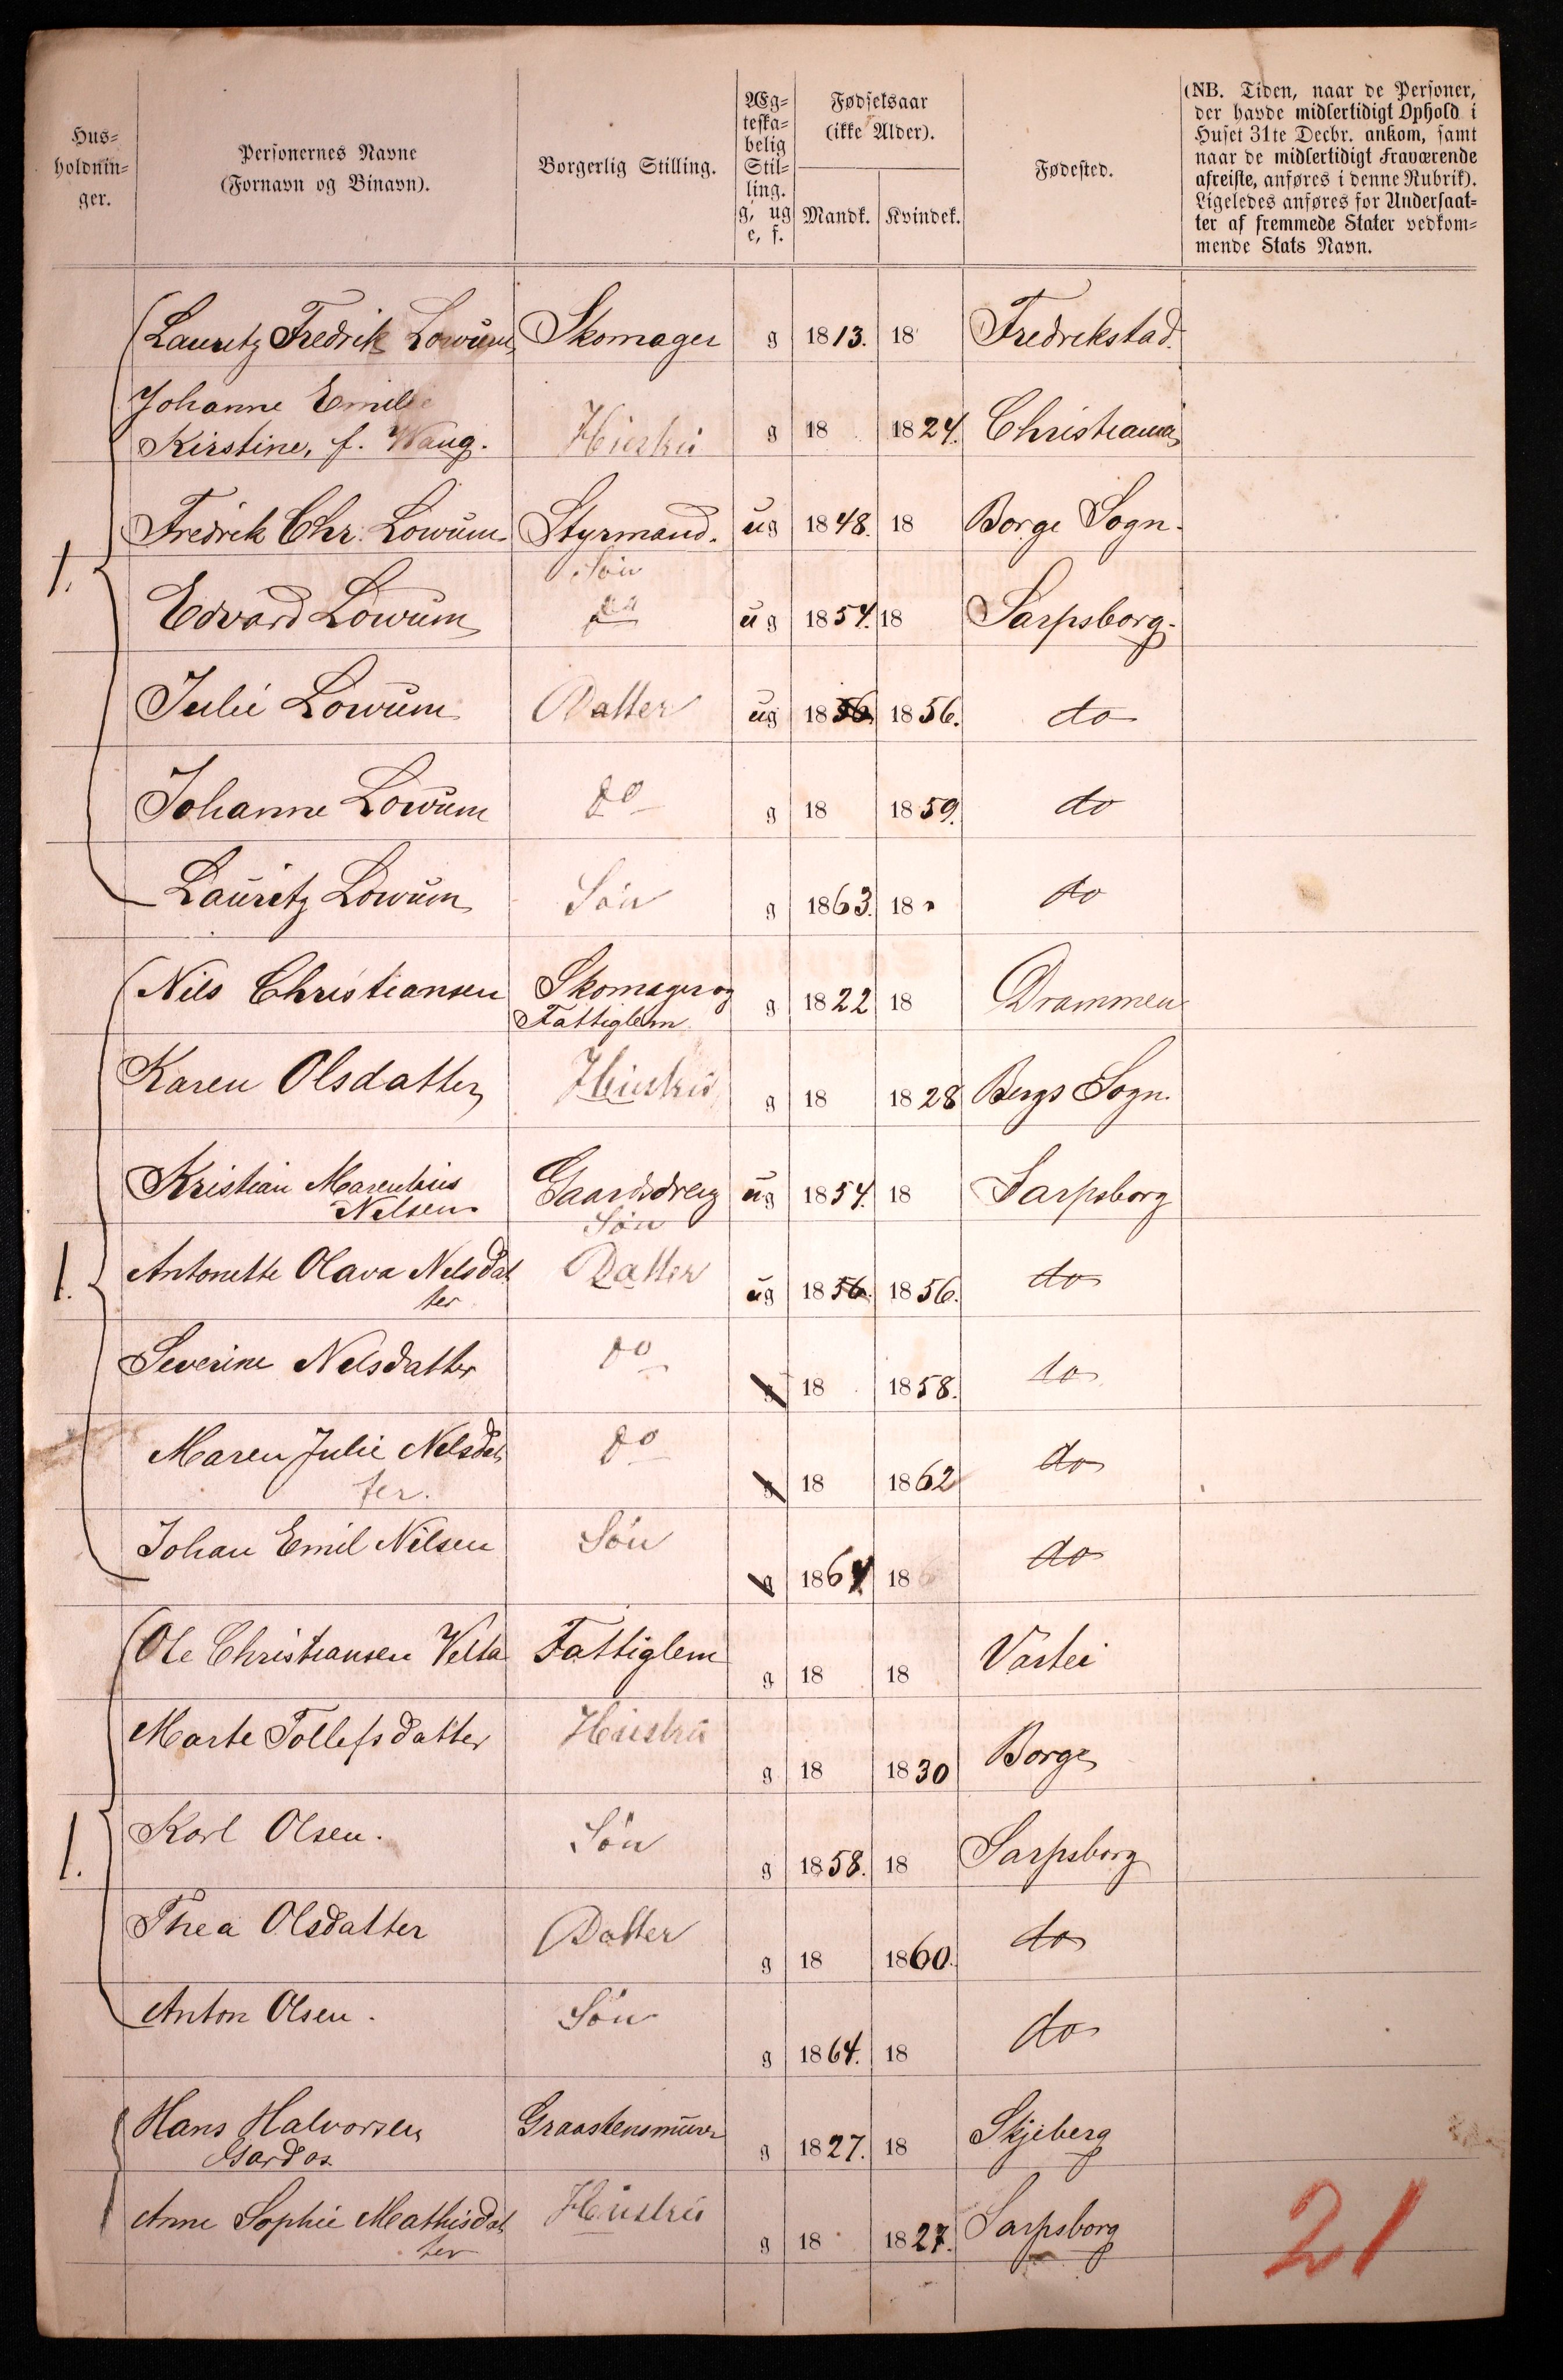 Hus-
holdnin-
ger.
Personernes Navne
(Fornavn og Binavn).
Borgerlig Stilling.
Æg-
teska-
belig
Stil-
ling.
g, ug
e, f.
Fødselsaar
(ikke Alder).
Mandk. Kvindek.
Fødested.
(NB. Tiden, naar de Personer,
der havde midlertidigt Ophold i
Huset 31te Decbr. ankom, samt
naar de midlertidigt Fraværende
afreiste, anføres i denne Rubrik).
Ligeledes anføres for Undersaat-
ter af fremmede Stater vedkom-
mende Stats Navn.
Lauritz Fredrik Lowum Skomager g 1813. 18 Fredrekstad.
Johanne Emilie
Kirstine, f. Waug. Hustru g 18 1824. Christiania
1. Fredrik Chr. Lowum Styrmand. ug 1848. 18 Borge Sogn.
Søn
Edvard Lowum do ug 1854. 18 Sarpsborg.
Julie Lowum Datter ug 1856 1856. do
Johanne Lowum do g 18 1859. do
Lauritz Lowum Søn g 1863. 18 do
Nils Christiansen Skomager og g 1822 18 Drammen
Fattiglem
Karen Olsdatter Hustru g 18 1828 Bergs Sogn.
Kristian Marentius Gaardsdreng ug 1854. 18 Sarpsborg
Nilsen Søn
1. Antonette Olava Nelsdat Datter ug 1856. 1856. do
ter
Severine Nelsdatter do g 18 1858. do
Maren Julie Nelsdat do g 18 1862 do
ter.
Johan Emil Nilsen Søn g 1864 18 do
Ole Christiansen Velta Fattiglem g 18 18 Vartei
Marte Tollefsdatter Hustru g 18 1830 Borge
1. Karl Olsen. Søn g 1858. 18 Sarpsborg
Thea Olsdatter Datter g 18 1860. do
Anton Olsen. Søn g 1864. 18 do
Hans Halvorsen Graastensmurer g 1827. 18 Skjeberg
Anne Sophie Mathisdat Hustru g 18 1827. Sarpsborg
ter
21